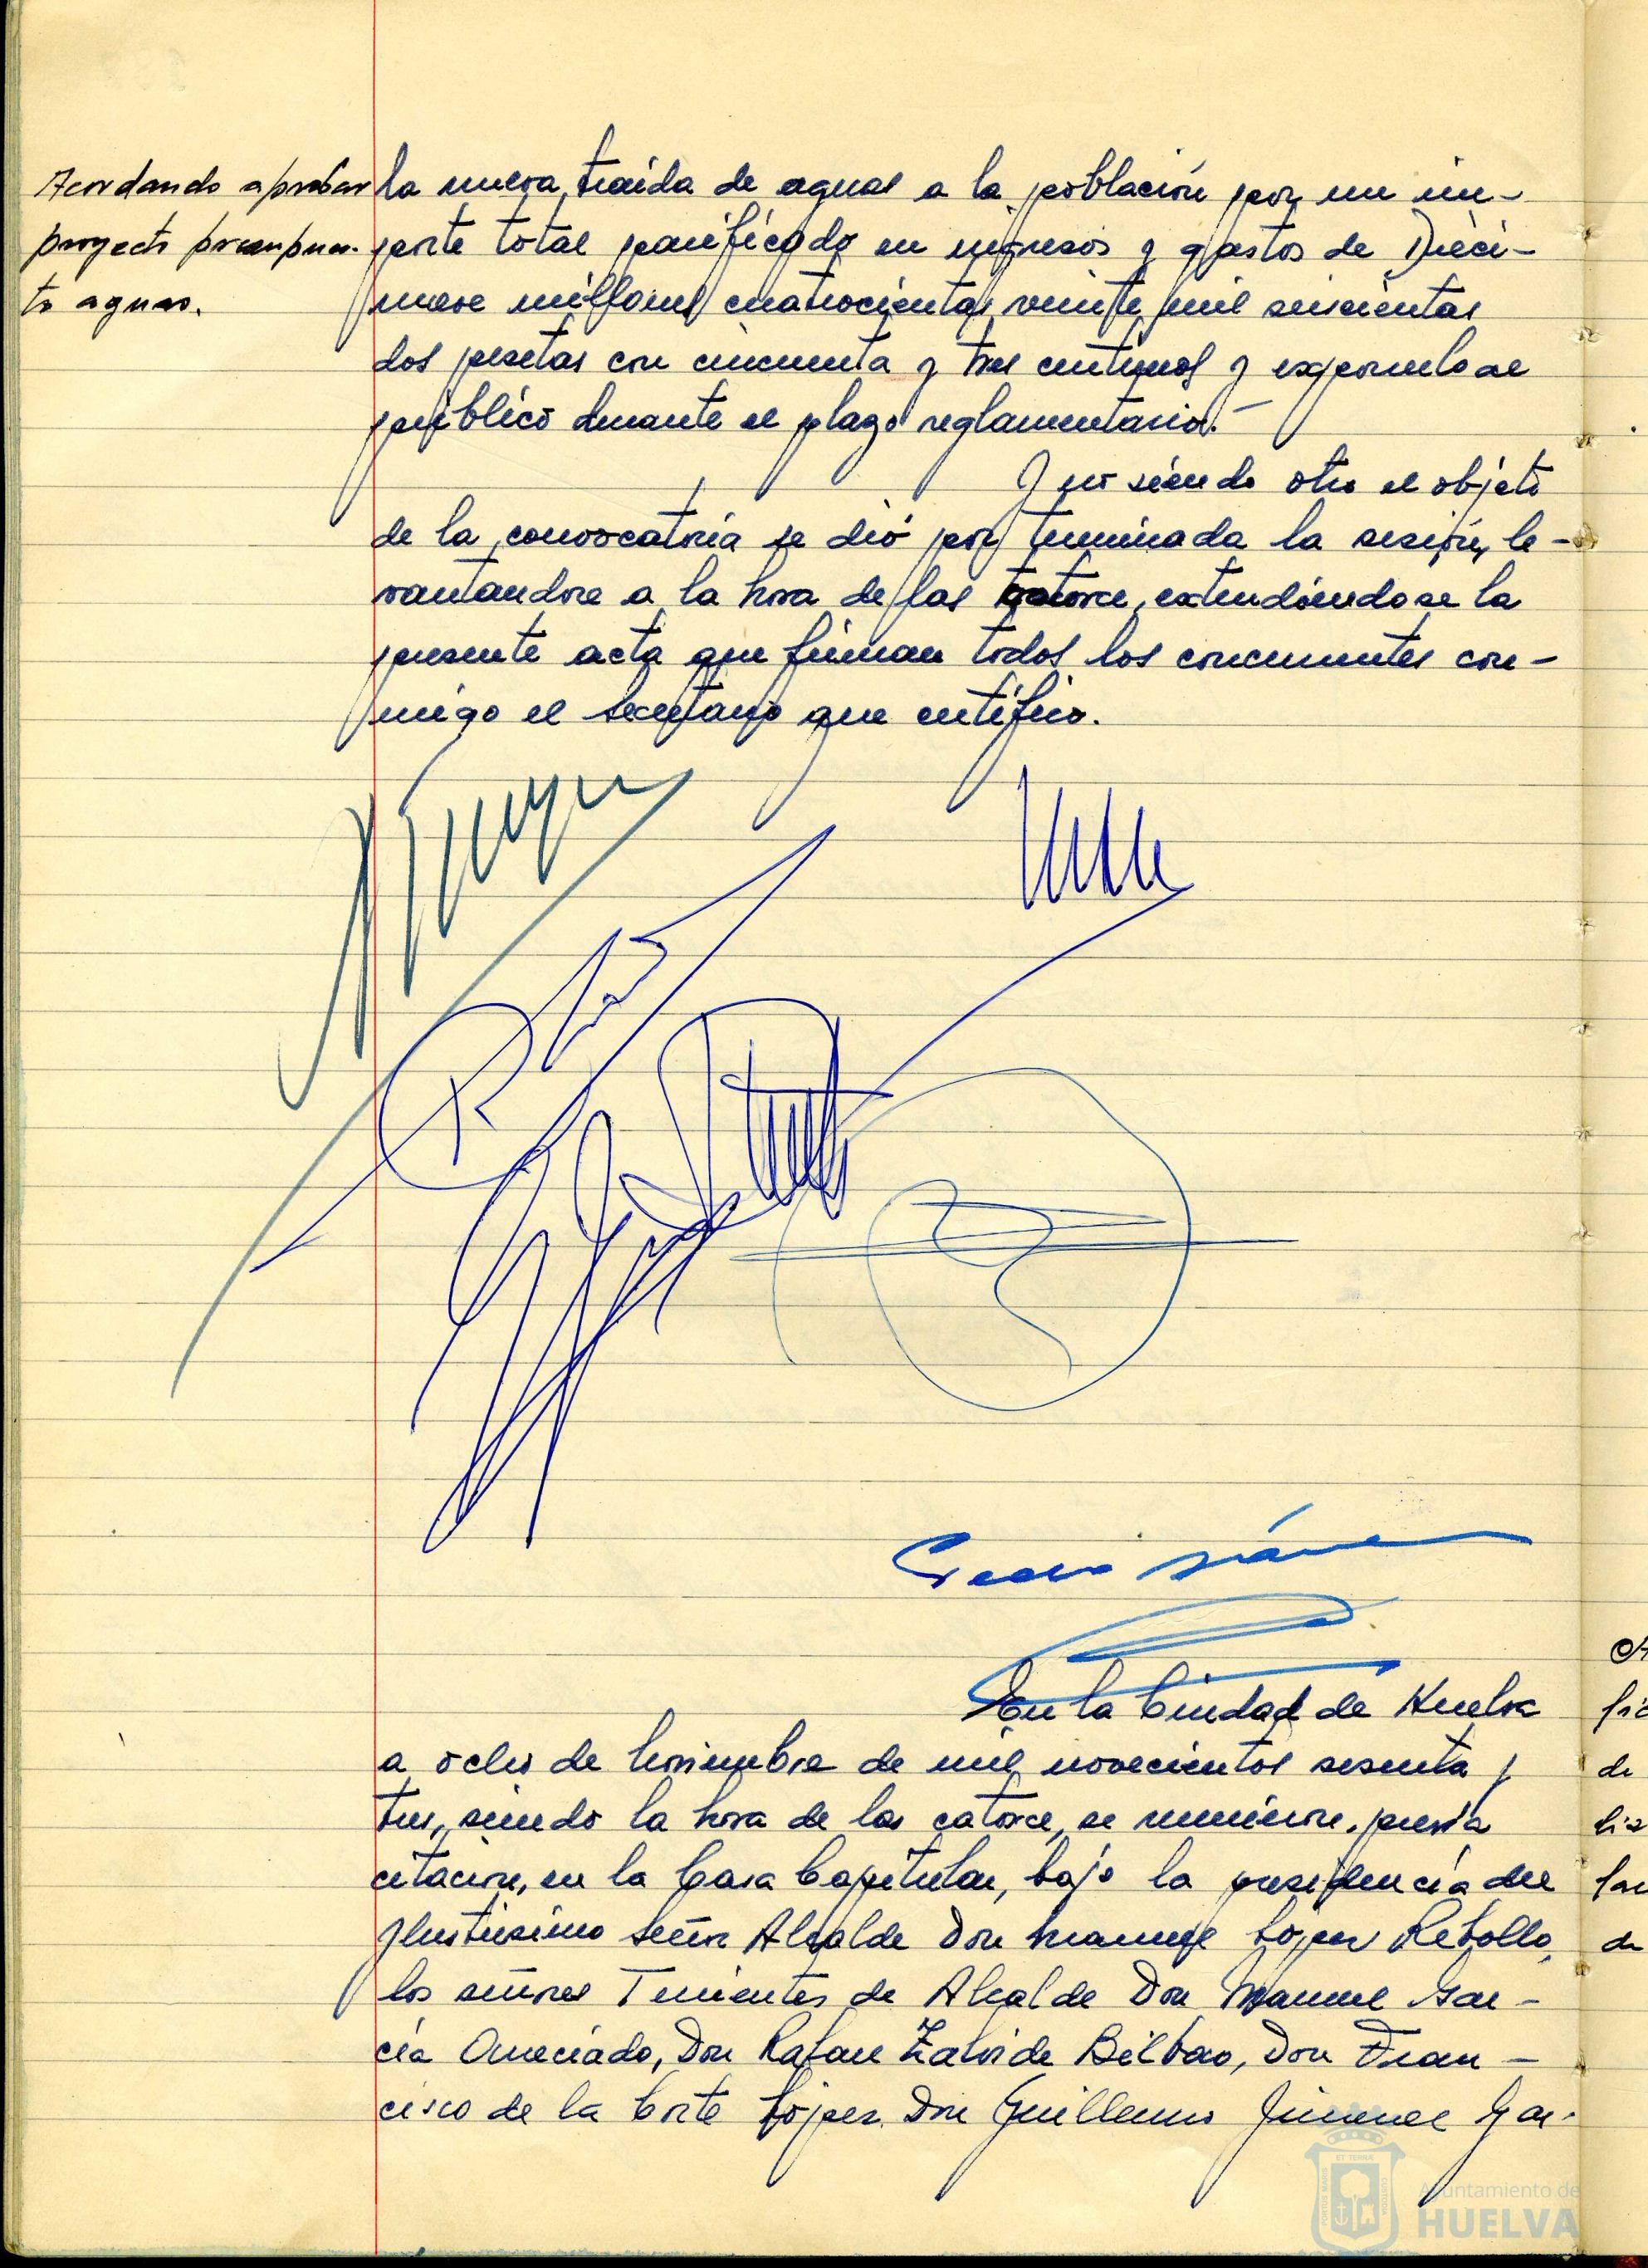 Acordando aprobar
proyecto presupues-
to aguas.
la nueva traida de aguas a la población por un im-
porte total panificado en ingresos y gastos de Dieci-
nueve millones cuatrocientas veinte mil seiscientas
dos pesetas con cincuenta y tres centimos y exponerlo al
público durante el plazo reglamentario.-
Y no siendo otro el objeto
de la convocatoria se dió por terminada la sesión, le-
vantandose a la hora de las catorce, extendiendose la
presente acta que firman todos los concurrentes con-
migo el Secretario que certifico.
En la Ciudad de Huelva
a ocho de Noviembre de mil novecientos sesenta y
tres, siendo la hora de las catorce, se reunieron, previa
citacion, en la Casa Capitular, bajo la presidencia del
Ilustrisimo Señor Alcalde Don Manuel López Rebollo,
los señores Tenientes de Alcalde Don Manuel Gar-
cía Don Rafael Bilbao, Don Fran-
cisco de la Corte López, Don Guillermo Jimenez Gar-
Ayuntamiento de
HUELVA